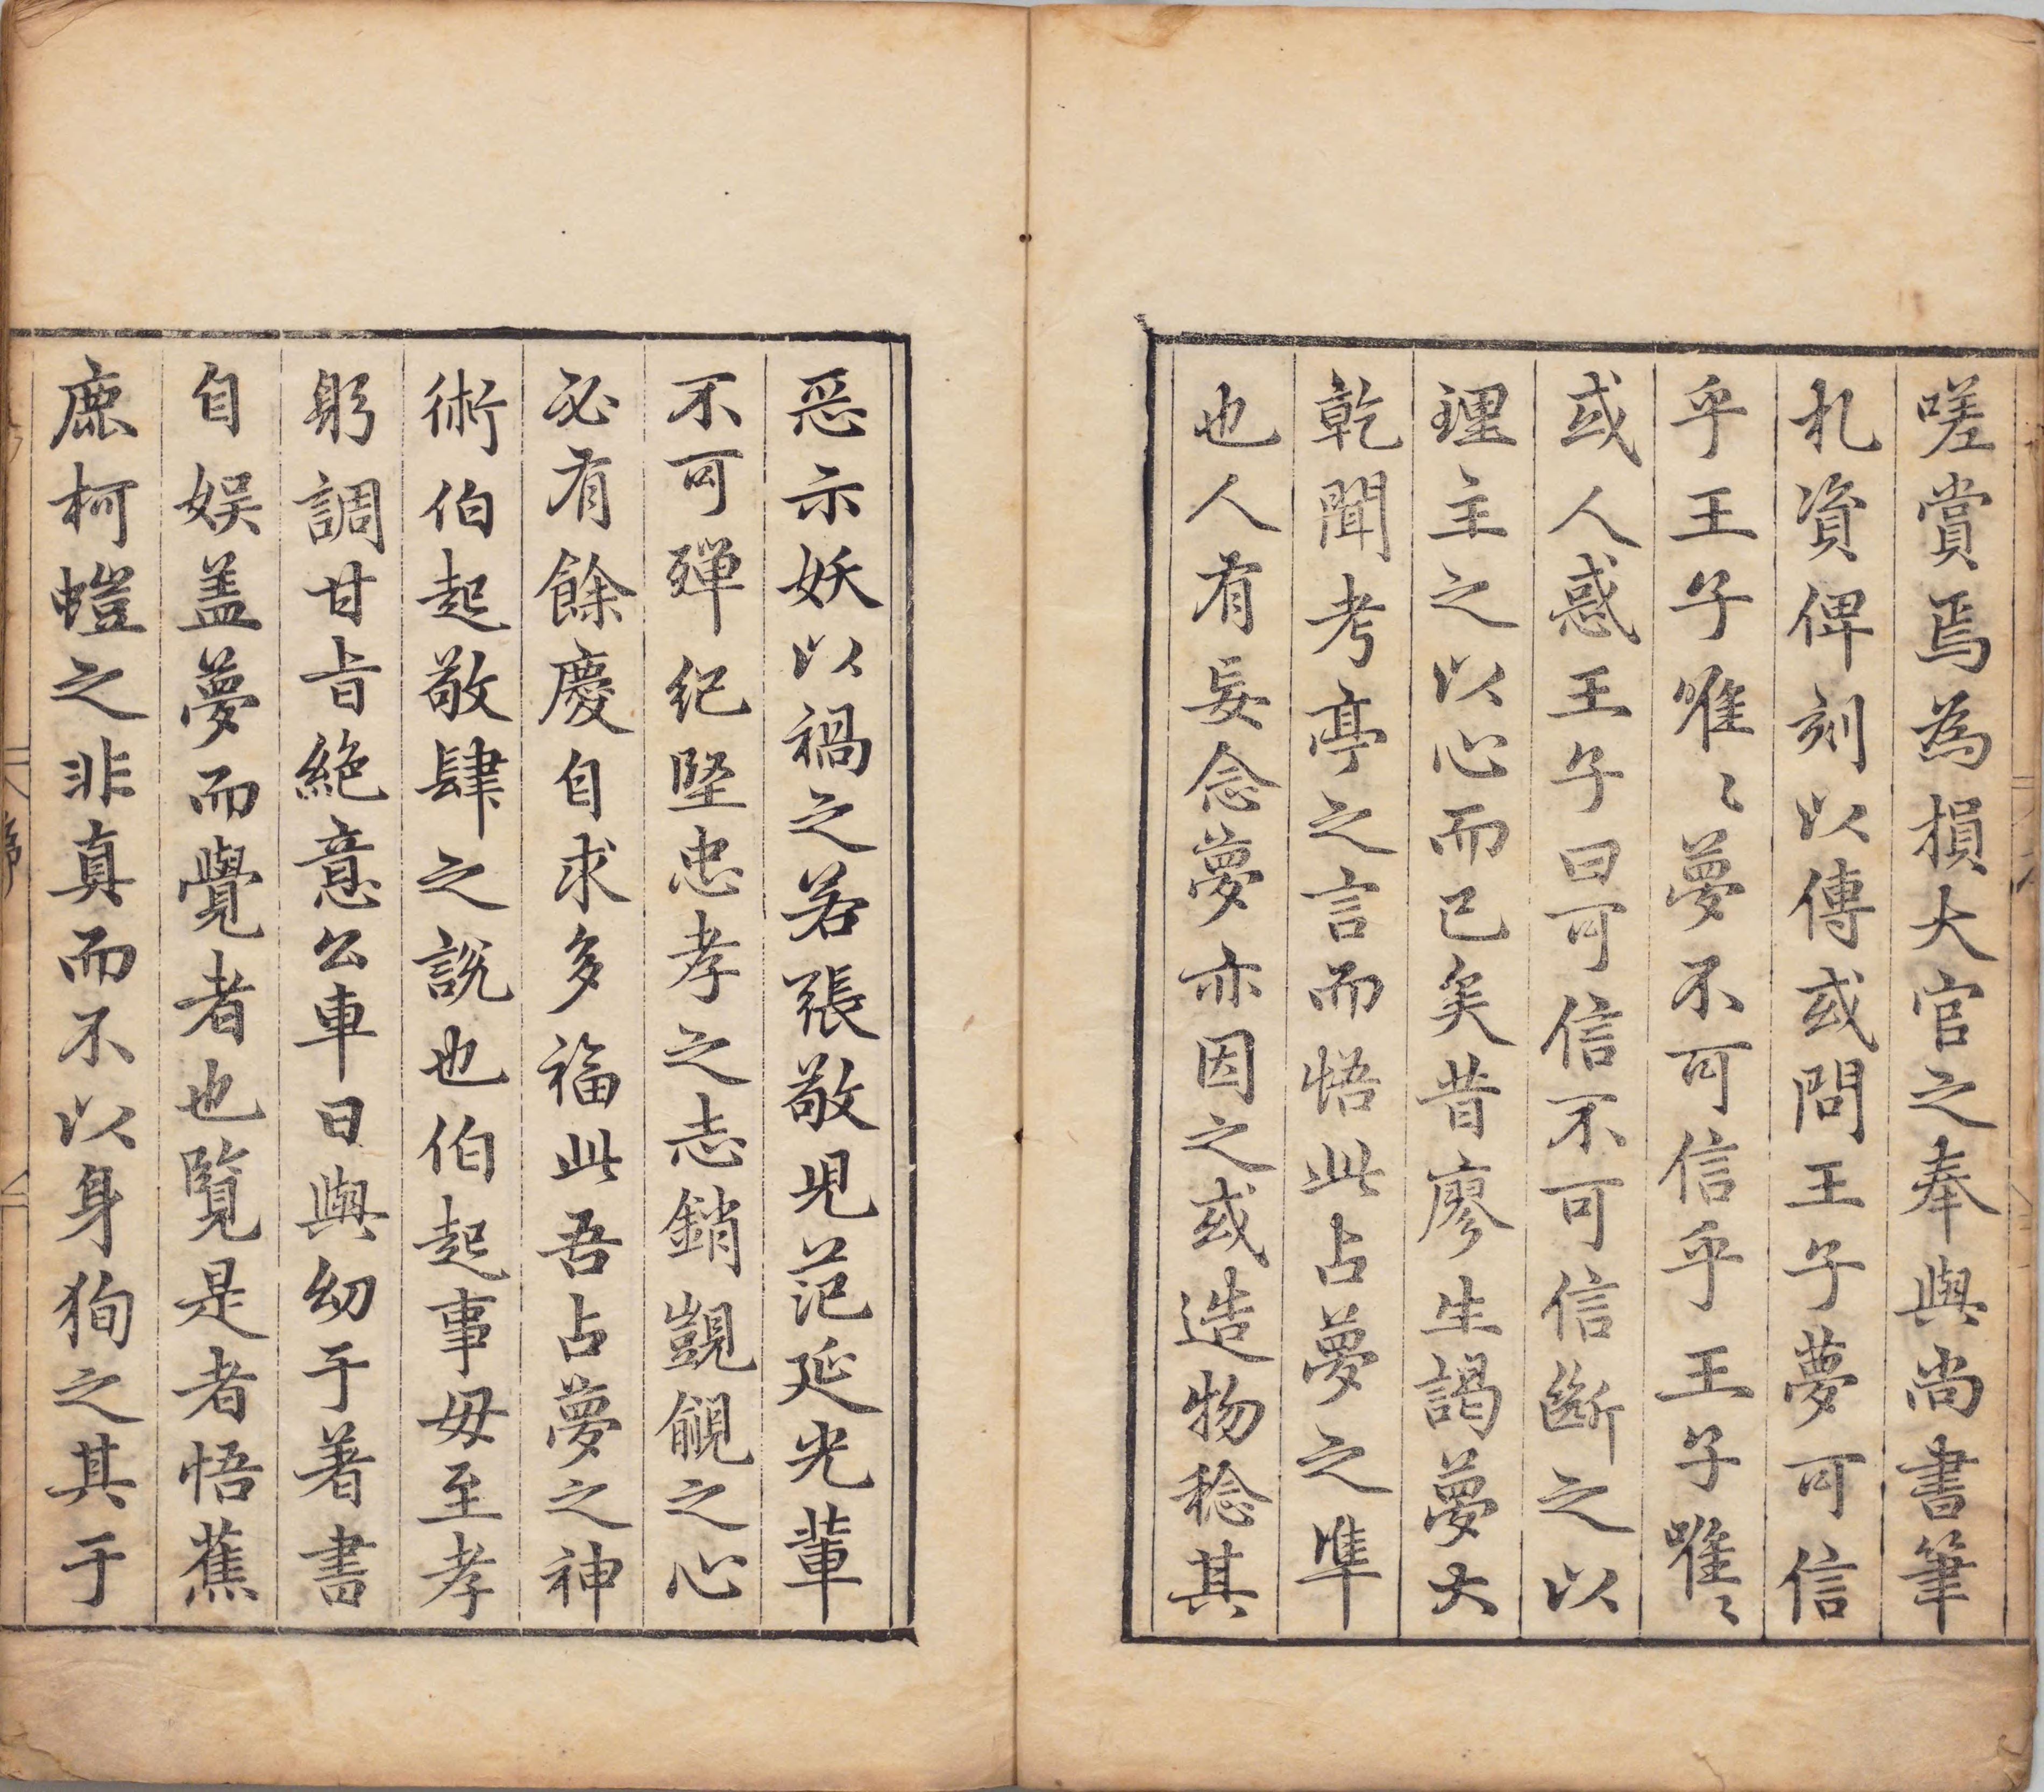 嗟賞焉為損大官之奉與尚書筆
札資俾刻以傳或問王子夢可信
乎王子唯〻夢不可信乎王子唯〻
或人惑王子曰可信不可信斷之以
理主之以心而已矣昔廖生謁夢大
乾聞考亭之言而悟此占夢之準
也人有妄念夢亦因之或造物稔其
惡示妖以禍之若張敬児范延光輩
不可殫紀堅忠孝之志銷覬覦之心
必有餘慶自求多福此吾占夢之神
術伯起敬肆之説也伯起事毋至孝
躬調甘旨絶意公車日與幼于著書
自娱盖夢而覺者也覧是者悟蕉
鹿柯螘之非真而不以身狥之其于
序